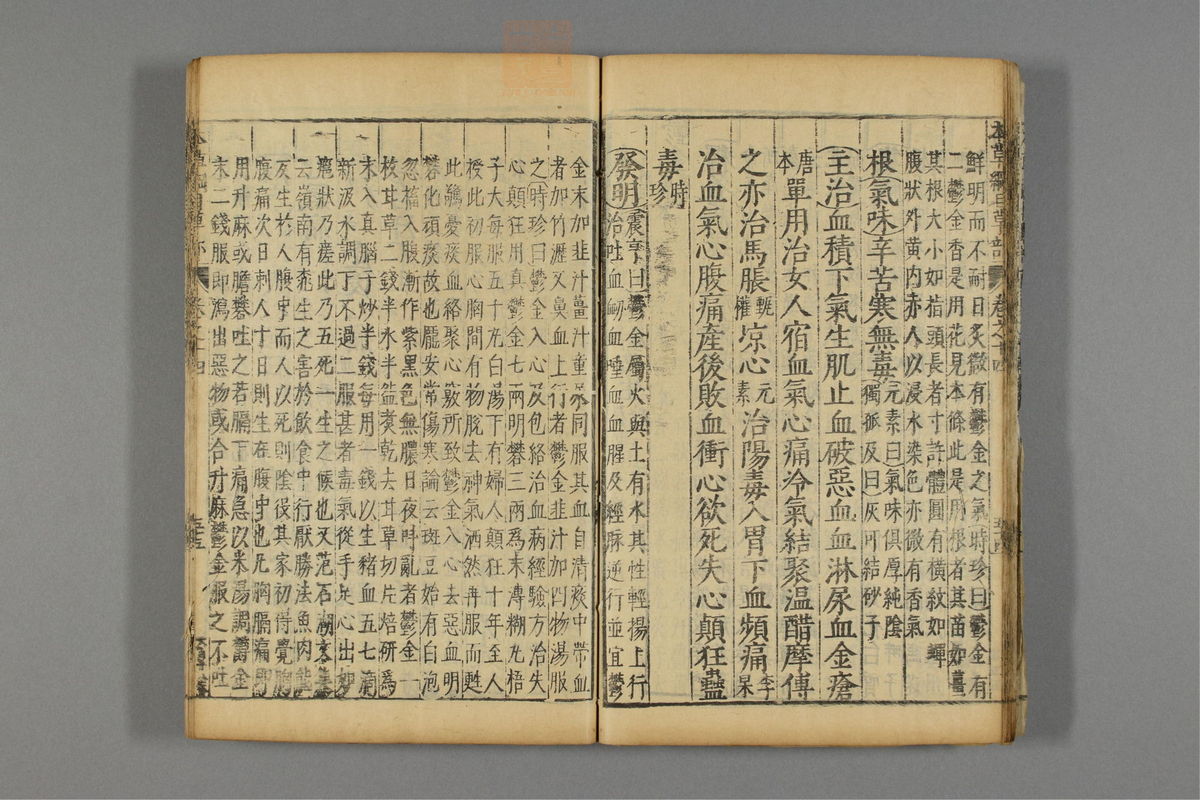 本草綱目草部 卷之十四
鮮明而不耐日炙微有鬱金之氣時珍曰鬱金有
二鬱金香是用花見本條此是用根者其苗如薑
其根大小如指頭長者寸許體圓有橫紋如蟬
腹狀外黃內赤人以浸水染色亦微有香氣
根氣味辛苦寒無毒元素曰氣味俱厚純陰獨孤及曰灰可結砂子
主治血積下氣生肌止血破惡血血淋尿血金瘡
唐本單用治女人宿血氣心痛冷氣結聚温醋摩傅
之亦治馬脹甄權凉心元素治陽毒入胃下血頻痛李杲
治血氣心腹痛產後敗血衝心欲死失心顛狂蠱
毒時珍
發明震亨曰鬱金屬火與土有水其性輕揚上行
治吐血衄血唾血血腥及經脉逆行並宜鬱
金末加韭汁薑汁童尿同服其血自清痰中帶血
者加竹瀝又鼻血上行者鬱金韭汁加四物湯服
之時珍曰鬱金入心及包絡治血病經驗方治失
心顛狂用真鬱金七兩明礬三兩爲末薄糊丸梧
子大每服五十丸白湯下有婦人顛狂十年至人
授此初服心胸間有物脫去神氣洒然再服而甦
此驚憂痰血絡聚心竅所致鬱金入心去惡血明
礬化頑痰故也龐安常傷寒論云斑豆始有白泡
忽搐入腹漸作紫黑色無膿日夜呌亂者鬱金一
枚甘草二錢半水半盌煮乾去甘草切片焙研爲
末入真腦子炒半錢每用一錢以生豬血五七滴
新汲水調下不過二服甚者毒氣從手足心出如
癰狀乃瘥此乃五死一生之候也又范石湖文集
云嶺南有挑生之害於飲食中行厭勝法魚肉能
反生於人腹中而人以死則陰役其家初得覺胸
腹痛次日刺人十日則生在腹中也凡胸膈痛即
用升麻或膽礬吐之若膈下痛急以米湯調鬱金
末二錢服即瀉出惡物或合升麻鬱金服之不吐
本草綱目草部 卷之十四